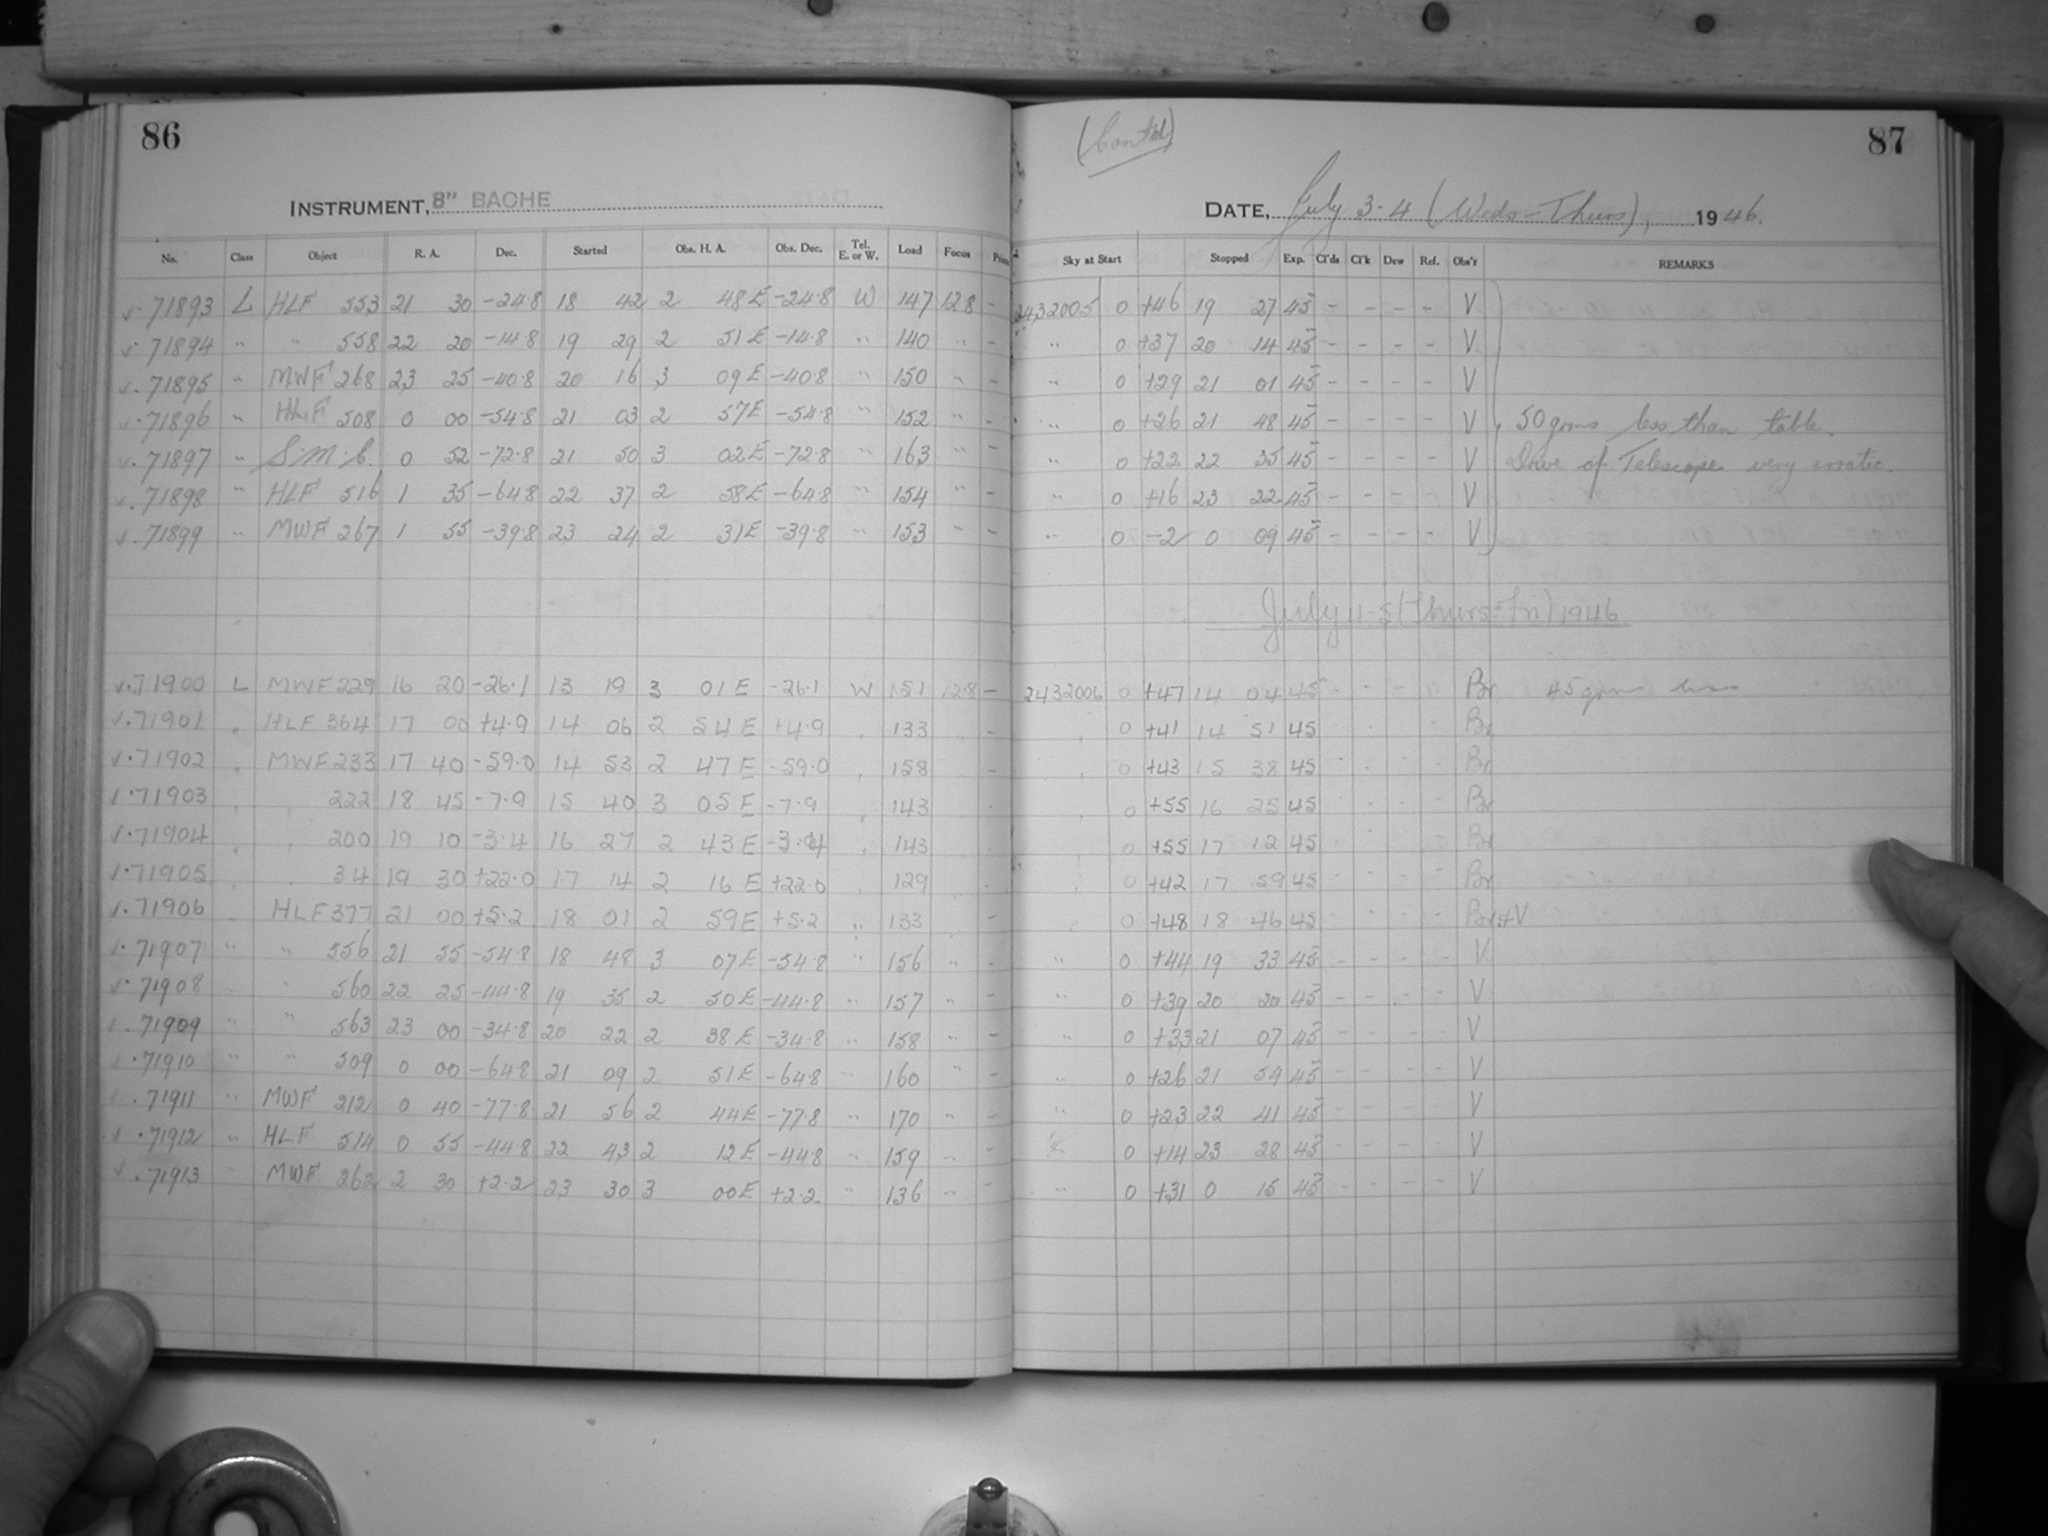 86
INSTRUMENT, 8" BACHE
No. Class Object R. A. Dec. Started Obs. H. A. Obs. Dec. Tel. E. or W. Load Focus
v. 71893 L HLF 553 21 30 -24.8 18 42 2 48 E -24.8 W 147 12.8 -
v. 71894 " " 558 22 20 -14.8 19 29 2 51 E -14.8 " 140 " -
v. 71895 " MWF 268 23 25 -40.8 20 16 3 09 E -40.8 " 150 " -
v. 71896 " HLF 508 0 00 -54.8 21 03 2 57 E -54.8 " 152 " -
v. 71897 " S.M.C. 0 52 -72.8 21 50 3 02 E -72.8 " 163 " -
v. 71898 " HLF 516 1 35 -64.8 22 37 2 58 E -64.8 " 154 " -
v. 71899 " MWF 267 1 55 -39.8 23 24 2 31 E -39.8 " 153 " -
v. 71900 L MWF 229 16 20 -26.1 13 19 3 01 E -26.1 W 151 12.8 -
v. 71901 " HLF 364 17 00 +4.9 14 06 2 54 E +4.9 " 133 -
v. 71902 " MWF 233 17 40 -59.0 14 53 2 47 E -59.0 " 158 -
v. 71903 " " 222 18 45 -7.9 15 40 3 05 E -7.9 " 143
v. 71904 " " 200 19 10 -3.4 16 27 2 43 E -3.4 " 143
v. 71905 " " 34 19 30 +22.0 17 14 2 16 E +22.0 " 129
v. 71906 " HLF 377 21 00 +5.2 18 01 2 59 E +5.2 " 133 -
v. 71907 " " 556 21 55 -54.8 18 48 3 07 E -54.8 " 156 " -
v. 71908 " " 560 22 25 -44.8 19 35 2 50 E -44.8 " 157 " -
v. 71909 " " 563 23 00 -34.8 20 22 2 38 E -34.8 " 158 " -
v. 71910 " " 509 0 00 -64.8 21 09 2 51 E -64.8 " 160 " -
v. 71911 " MWF 212 0 40 -77.8 21 56 2 44 E -77.8 " 170 " -
v. 71912 " HLF 514 0 55 -44.8 22 43 2 12 E -44.8 " 159 " -
v. 71913 " MWF 262 2 30 +2.2 23 30 3 00 E +2.2 " 136 " -
(Contd)
87
DATE, July 3-4 (Weds-Thurs), 1946.
Sky at Start Stopped Exp. Cl'ds Cl'k Dew Ref. Obs'r REMARKS
2432005 0 +46 19 27 45 - - - - V
" 0 +37 20 14 45 - - - - V
" 0 +29 21 01 45 - - - - V
" 0 +26 21 48 45 - - - - V 50 gms less than table.
" 0 +22 22 35 45 - - - - V Drive of Telescope very erratic.
" 0 +16 23 22 45 - - - - V
" 0 -2 0 09 45 - - - - V
July 4-5 (Thurs-Fri) 1946
2432006 0 +47 14 04 45 - - - Br 45 gms less
0 +41 14 51 45 Br
0 +43 15 38 45 Br
0 +55 16 25 45 Br
0 +55 17 12 45 Br
0 +42 17 59 45 Br
0 +48 18 46 45 V
" 0 +44 19 33 45 - - - - V
" 0 +39 20 20 45 - - - - V
" 0 +33 21 07 45 - - - - V
" 0 +26 21 54 45 - - - - V
" 0 +23 22 41 45 - - - - V
" 0 +14 23 28 45 - - - - V
" 0 +31 0 15 45 - - - - V